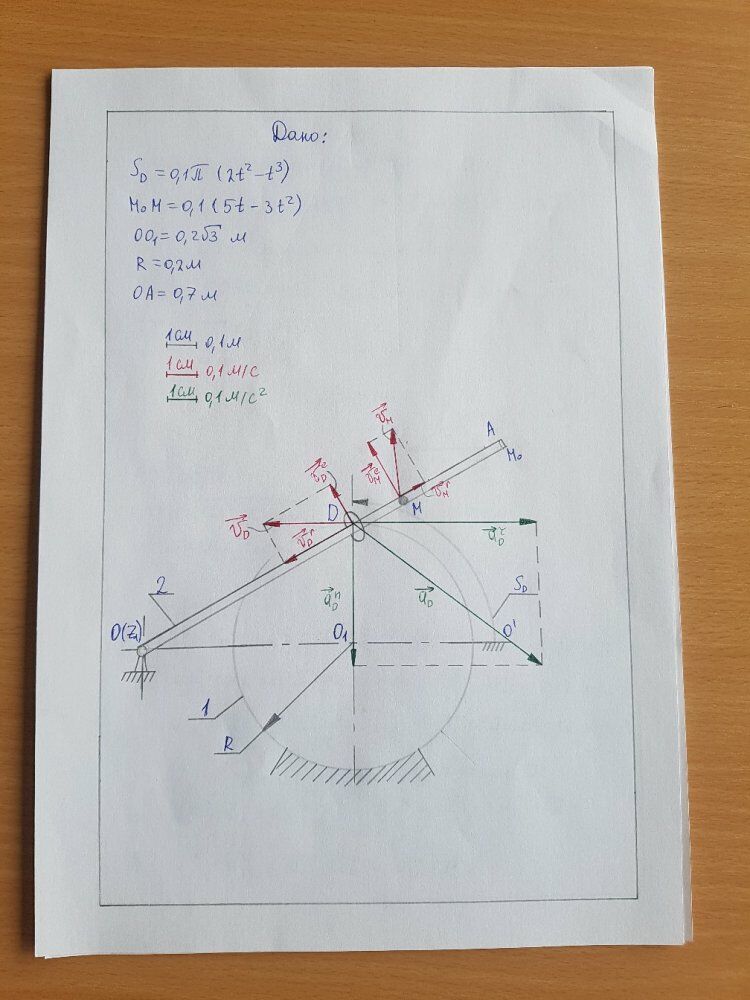 Дано:
S_D = 0,1π (2t² − t³)
M₀M = 0,1 (5t − 3t²)
OO₁ = 0,2√3 м
R = 0,2м
OA = 0,7 м
1см 0,1м
1см 0,1м/с
1см 0,1м/с²
A
M₀
v⃗_M
v⃗_M^e
v⃗_M^r
M
v⃗_D^e
D
v⃗_D
v⃗_D^r
a⃗_D^τ
2
a⃗_D^n
a⃗_D
S_D
O(Z₁)
O₁
O'
1
R